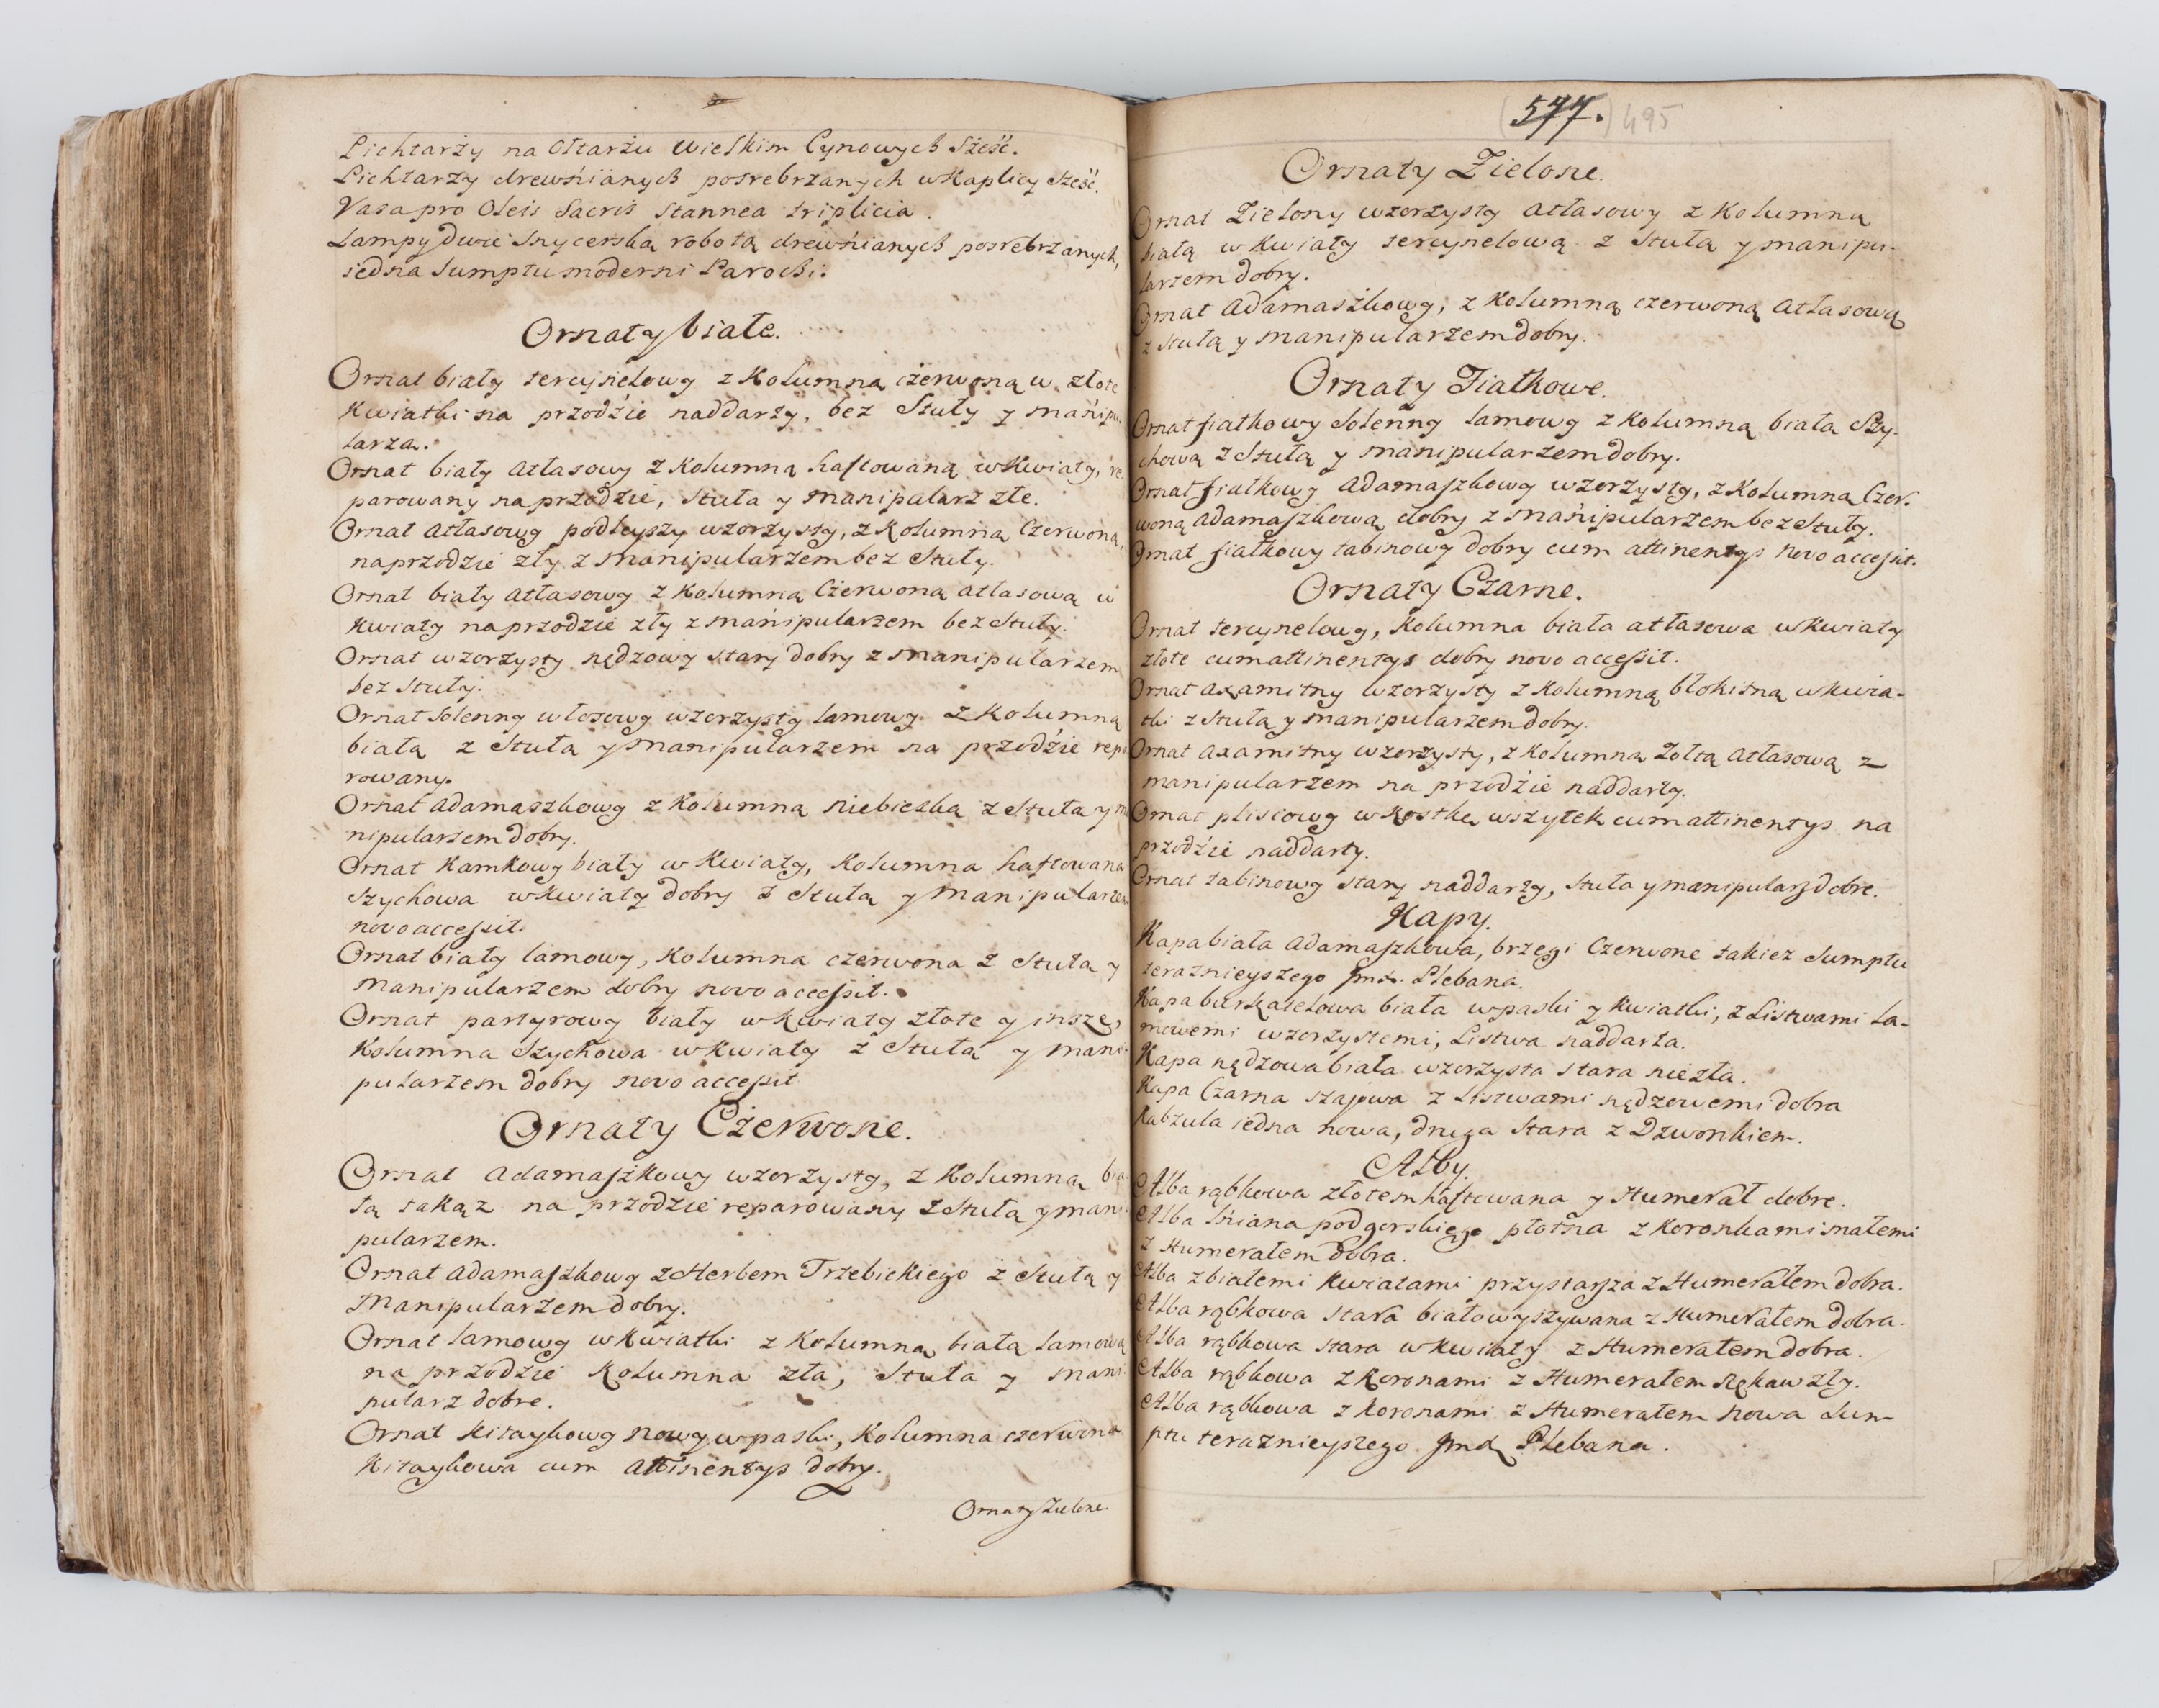 Lichtarży na Ołtarżu Wielkim Cynowych Sześć.
Lichtarży drewnianych posrebrzanych w Kaplicy Sześć.
Vasa pro Oleis Sacris Stannea triplicia.
Lampy dwie Snycerską robotą drewnianych posrebrzanych,
iedna Sumptu moderni Parochi.
Ornaty białe.
Ornat biały tercynelowy z Kolumną czerwoną w złote
Kwiatki na przodźie naddarty, bez Stuły y mańipu
larza.
Ornat biały Atłasowy z Kolumną haftowaną w Kwiaty, re
parowany na przodzie, Stuła y Manipularz złe.
Ornat Atłasowy podleyszy wzorzysty, z Kolumną Czerwoną,
na przodzie zły z Manipularzem bez Stuły.
Ornat biały Atłasowy z Kolumną Czerwoną atłasową w
Kwiaty na przodzie zły z mańipularzem bez Stuły.
Ornat wzorzysty nędzowy stary dobry z Manipularzem
bez Stuły.
Ornat Solenny włosowy wzorzysty lamowy z Kolumną
białą z Stułą y Manipularzem na przodźie repa
rowany.
Ornat Adamaszkowy z Kolumną niebieską z Stułą y m
nipularzem dobry.
Ornat Kamkowy biały w Kwiaty, Kolumna haftowana
Szychowa w Kwiaty dobry z Stułą y Manipularzem
novo accessit.
Ornat biały lamowy, Kolumna czerwona z Stułą y
Manipularzem dobry novo accessit.
Ornat partyrowy biały w Kwiaty złote y insze,
Kolumna Szychowa w Kwiaty z Stułą y mani
pularzem dobry novo accessit
Ornaty Czerwone.
Ornat Adamaszkowy wzorzysty, z Kolumną bia
łą takąz na przodzie reparowany z Stułą y mani
pularzem.
Ornat Adamaszkowy z Herbem Trzebickiego z Stułą y
Manipularzem dobry.
Ornat lamowy w Kwiatki z Kolumną białą lamową
na przodzie Kolumna zła, Stuła y mani
pularz dobre.
Ornat Kitaykowy nowy w paski, Kolumna czerwona
Kitaykowa cum Attinentys dobry.
Ornaty Zielone.
577. (495)
Ornaty Zielone.
Ornat Zielony wzorzysty Atłasowy z Kolumną
białą w Kwiaty tercynelową z Stułą y manipu-
larzem dobry.
Ornat Adamaszkowy, z Kolumną czerwoną Atłasową
z Stułą y Manipularzem dobry.
Ornaty Fiałkowe.
Ornat fiałkowy Solenny lamowy z Kolumną białą Szy-
chową z Stułą y Manipularzem dobry.
Ornat fiałkowy Adamaszkowy wzorzysty, z Kolumną Czer.
woną Adamaszkową dobry z Mańipularzem bez Stuły.
Ornat fiałkowy tabinowy dobry cum attinentys novo accessit.
Ornaty Czarne.
Ornat tercynelowy, Kolumna biała atłasowa w Kwiaty
złote cum attinentys dobry novo accessit.
Ornat Axamitny wzorzysty z Kolumną błokitną w Kwia-
tki z Stułą y Manipularzem dobry.
Ornat Axamitny wzorzysty, z Kolumną Zołtą Atłasową z
manipularzem na przodźie naddarty.
Ornat plisiowy w Kostkę wszytek cum attinentys na
przodźie naddarty.
Ornat tabinowy stary naddarty, Stuła y manipularz dobre.
Kapy.
Kapa biała Adamaszkowa, brzegi Czerwone takiez Sumptu
teraznieyszego Jmdx. Plebana.
Kapa burkatelowa biała w paski y Kwiatki, z Listwami la-
mowemi wzorzystemi, Listwa naddarta.
Kapa nędzowa biała wzorzysta stara niezła.
Kapa Czarna szajowa z Listwami nędzowemi dobra
Kabzula iedna nowa, druga Stara z Dzwonkiem.
Alby.
Alba rąbkowa złotem haftowana y Humerał dobre.
Alba lniana podgorskiego płotna z Koronkami małemi
z Humerałem dobra.
Alba z białemi Kwiatami przystarsza z Humerałem dobra.
Alba rąbkowa stara biało wyszywana z Humerałem dobra.
Alba rąbkowa stara w Kwiaty z Humerałem dobra.
Alba rąbkowa z Koronami z Humerałem rękaw zły.
Alba rąbkowa z Koronami z Humerałem nowa Sum-
ptu teraznieyszego Jmdx Plebana.